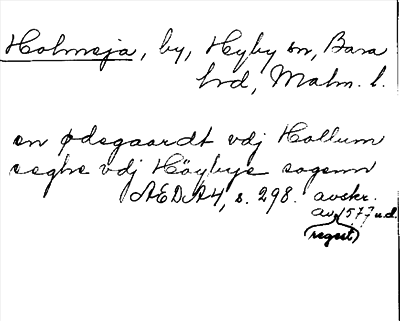 Holmeja, by, Hyby sn, Bara
hrd, Malm. l.
en ødegaardt vdj Hollum
seghe vdj Höybye sogenn
ÆDA 4, s. 298. avskr.
av 1577 u.d.
(regest)